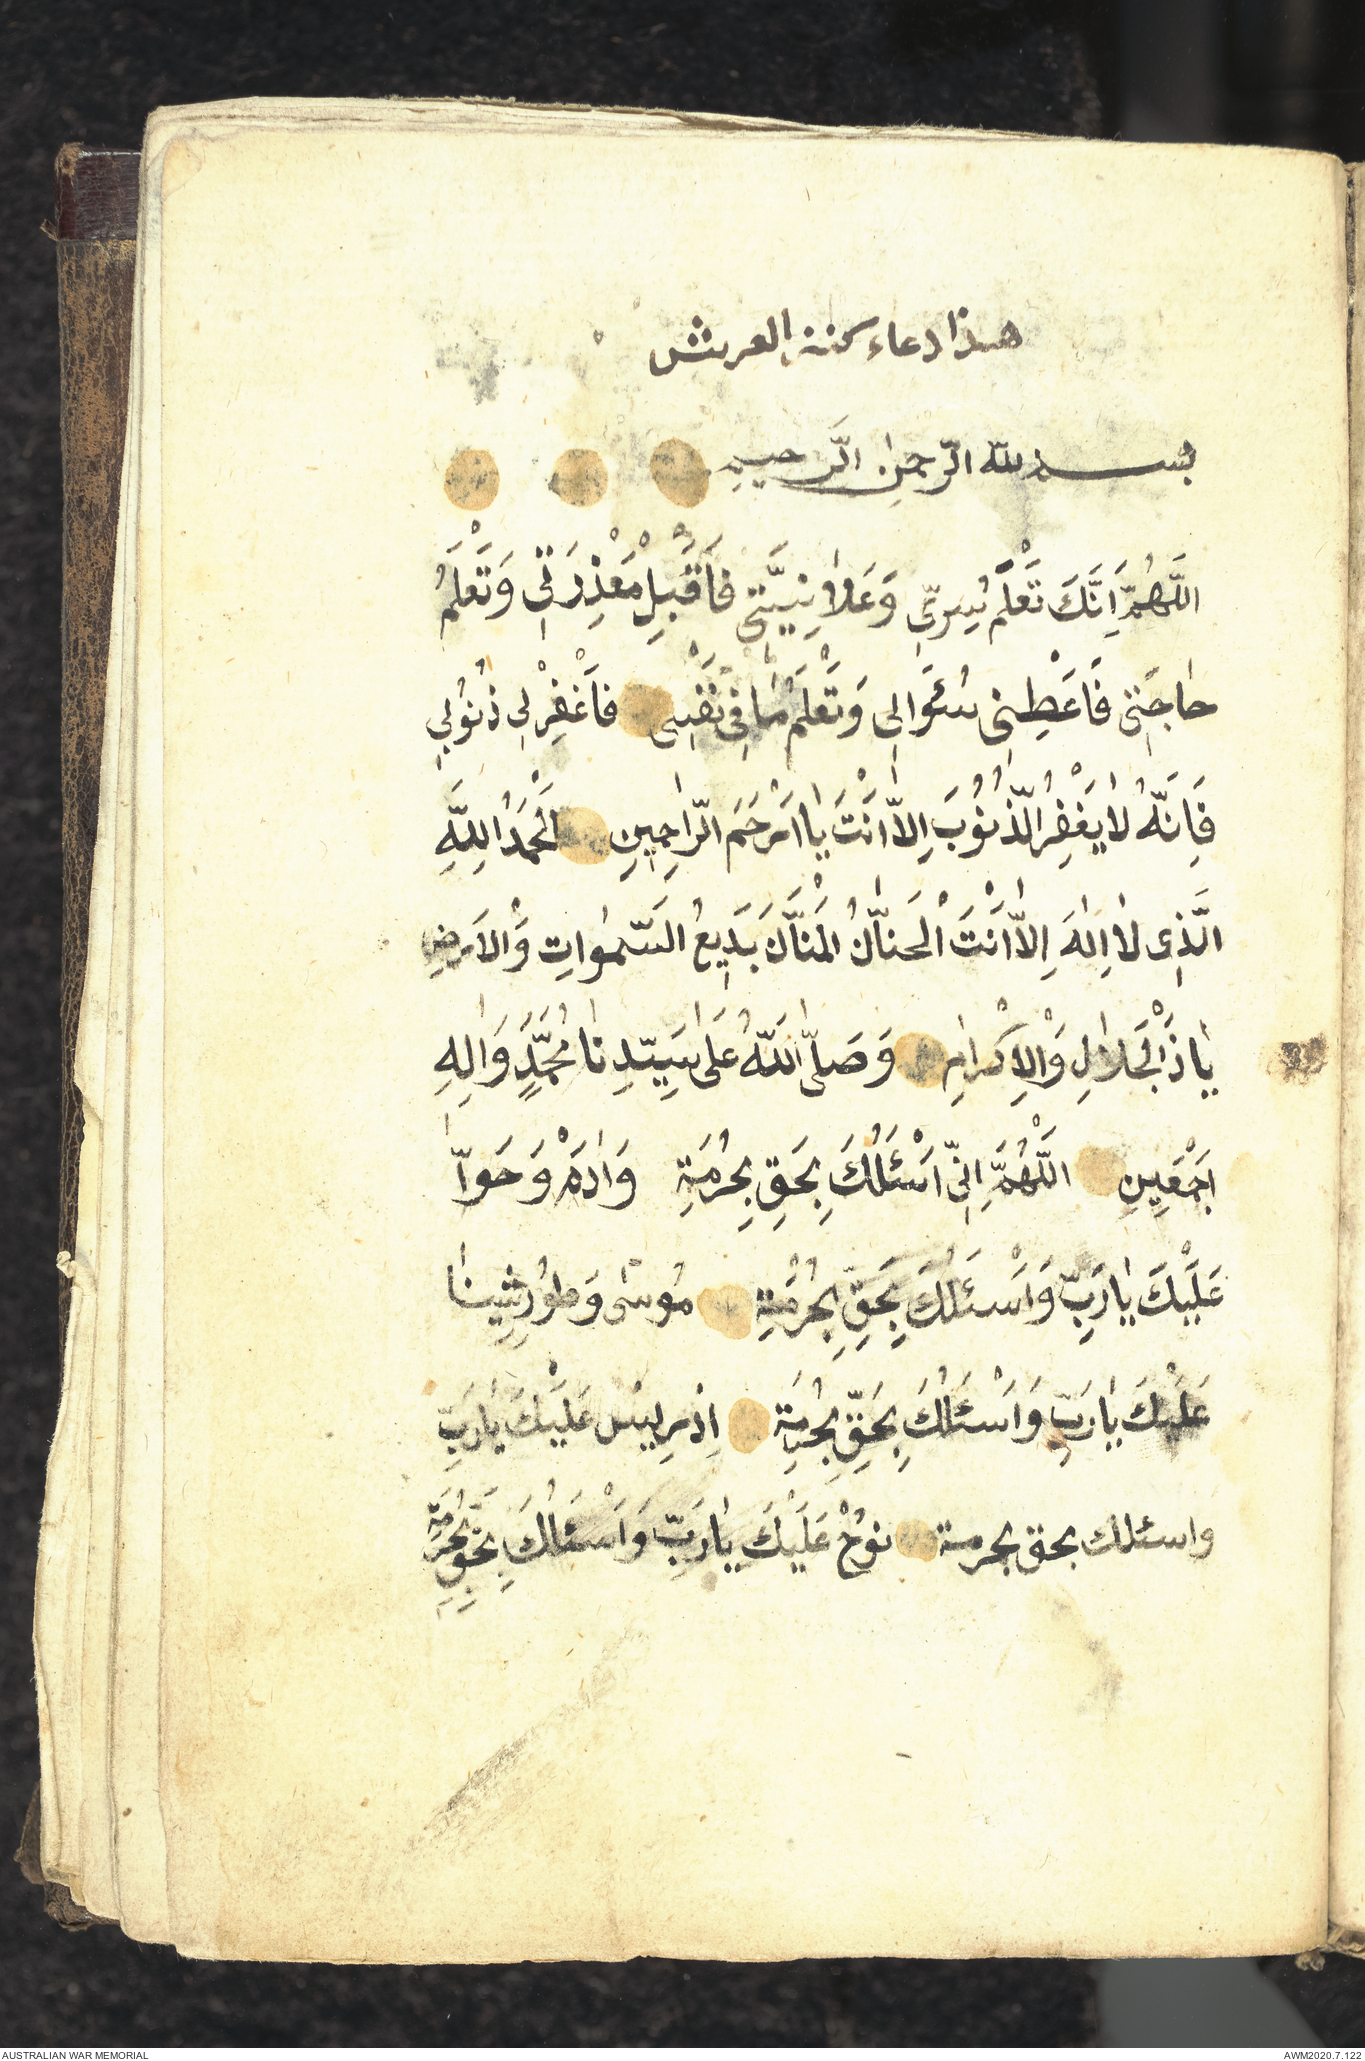 هذا دعاء كنز العرش
بسم الله الرّحمٰن الرَّحيمِ
اَللّٰهُمَّ اِنَّكَ تَعْلَمُ سِرّىِ وَعَلاٰنِيَّتىِ فَاَقْبِلْ مَعْذِرَتىِ وَتَعْلَمُ
حٰاجَتىِ فَاَعْطِنىِ سُئَوٰالىِ وَتَعْلَمُ مٰا فىِ نَفْسىِ فَاَغْفِرْلىِ ذُنُوُبىِ
فَاِنَّهُ لاٰ يَغْفِرُ الذُّنُوُبَ اِلاّٰ اَنْتَ يٰا اَرْحَمَ الرّٰاحِمِينِ اَلْحَمْدُ لِلّٰهِ
الَّذىِ لاٰ اِلٰهَ اِلاّٰ اَنْتَ الْحَنَّانُ الْمَنَّانَ بَدَيِعُ السَّمٰوٰاتِ وَالْاَرْضِ
يٰا ذَالْجَلاٰلِ وَالْاِكْرٰامِ وَصَلَّى اللّٰهُ عَلٰى سَيِّدِنٰا مُحَمَّدٍ وَاٰلِهِ
اَجْمَعِينِ اَللّٰهُمَّ اِنّىِ اَسْئَلُكَ بِحَقِ بِحُرْمَةِ وَاٰدَمْ وَحَوّٰا
عَلَيْكَ يٰارَبِّ وَاَسْئَلُكَ بِحَقِّ بِحُرْمَةِ مُوسٰى وَطُورِسِينٰا
عَلَيْكَ يٰارَبِّ وَاَسْئَلُكَ بِحَقِّ بِحُرْمَةِ اِدْرِيس عَلَيْكَ يٰارَبِّ
واسئلك بحق بحرمة نوُحْ عَلَيْكَ يٰارَبِّ وَاَسْئَلُكَ بِحَقِّ بِحُرْمَةِ
AUSTRALIAN WAR MEMORIAL
AWM2020.7.122